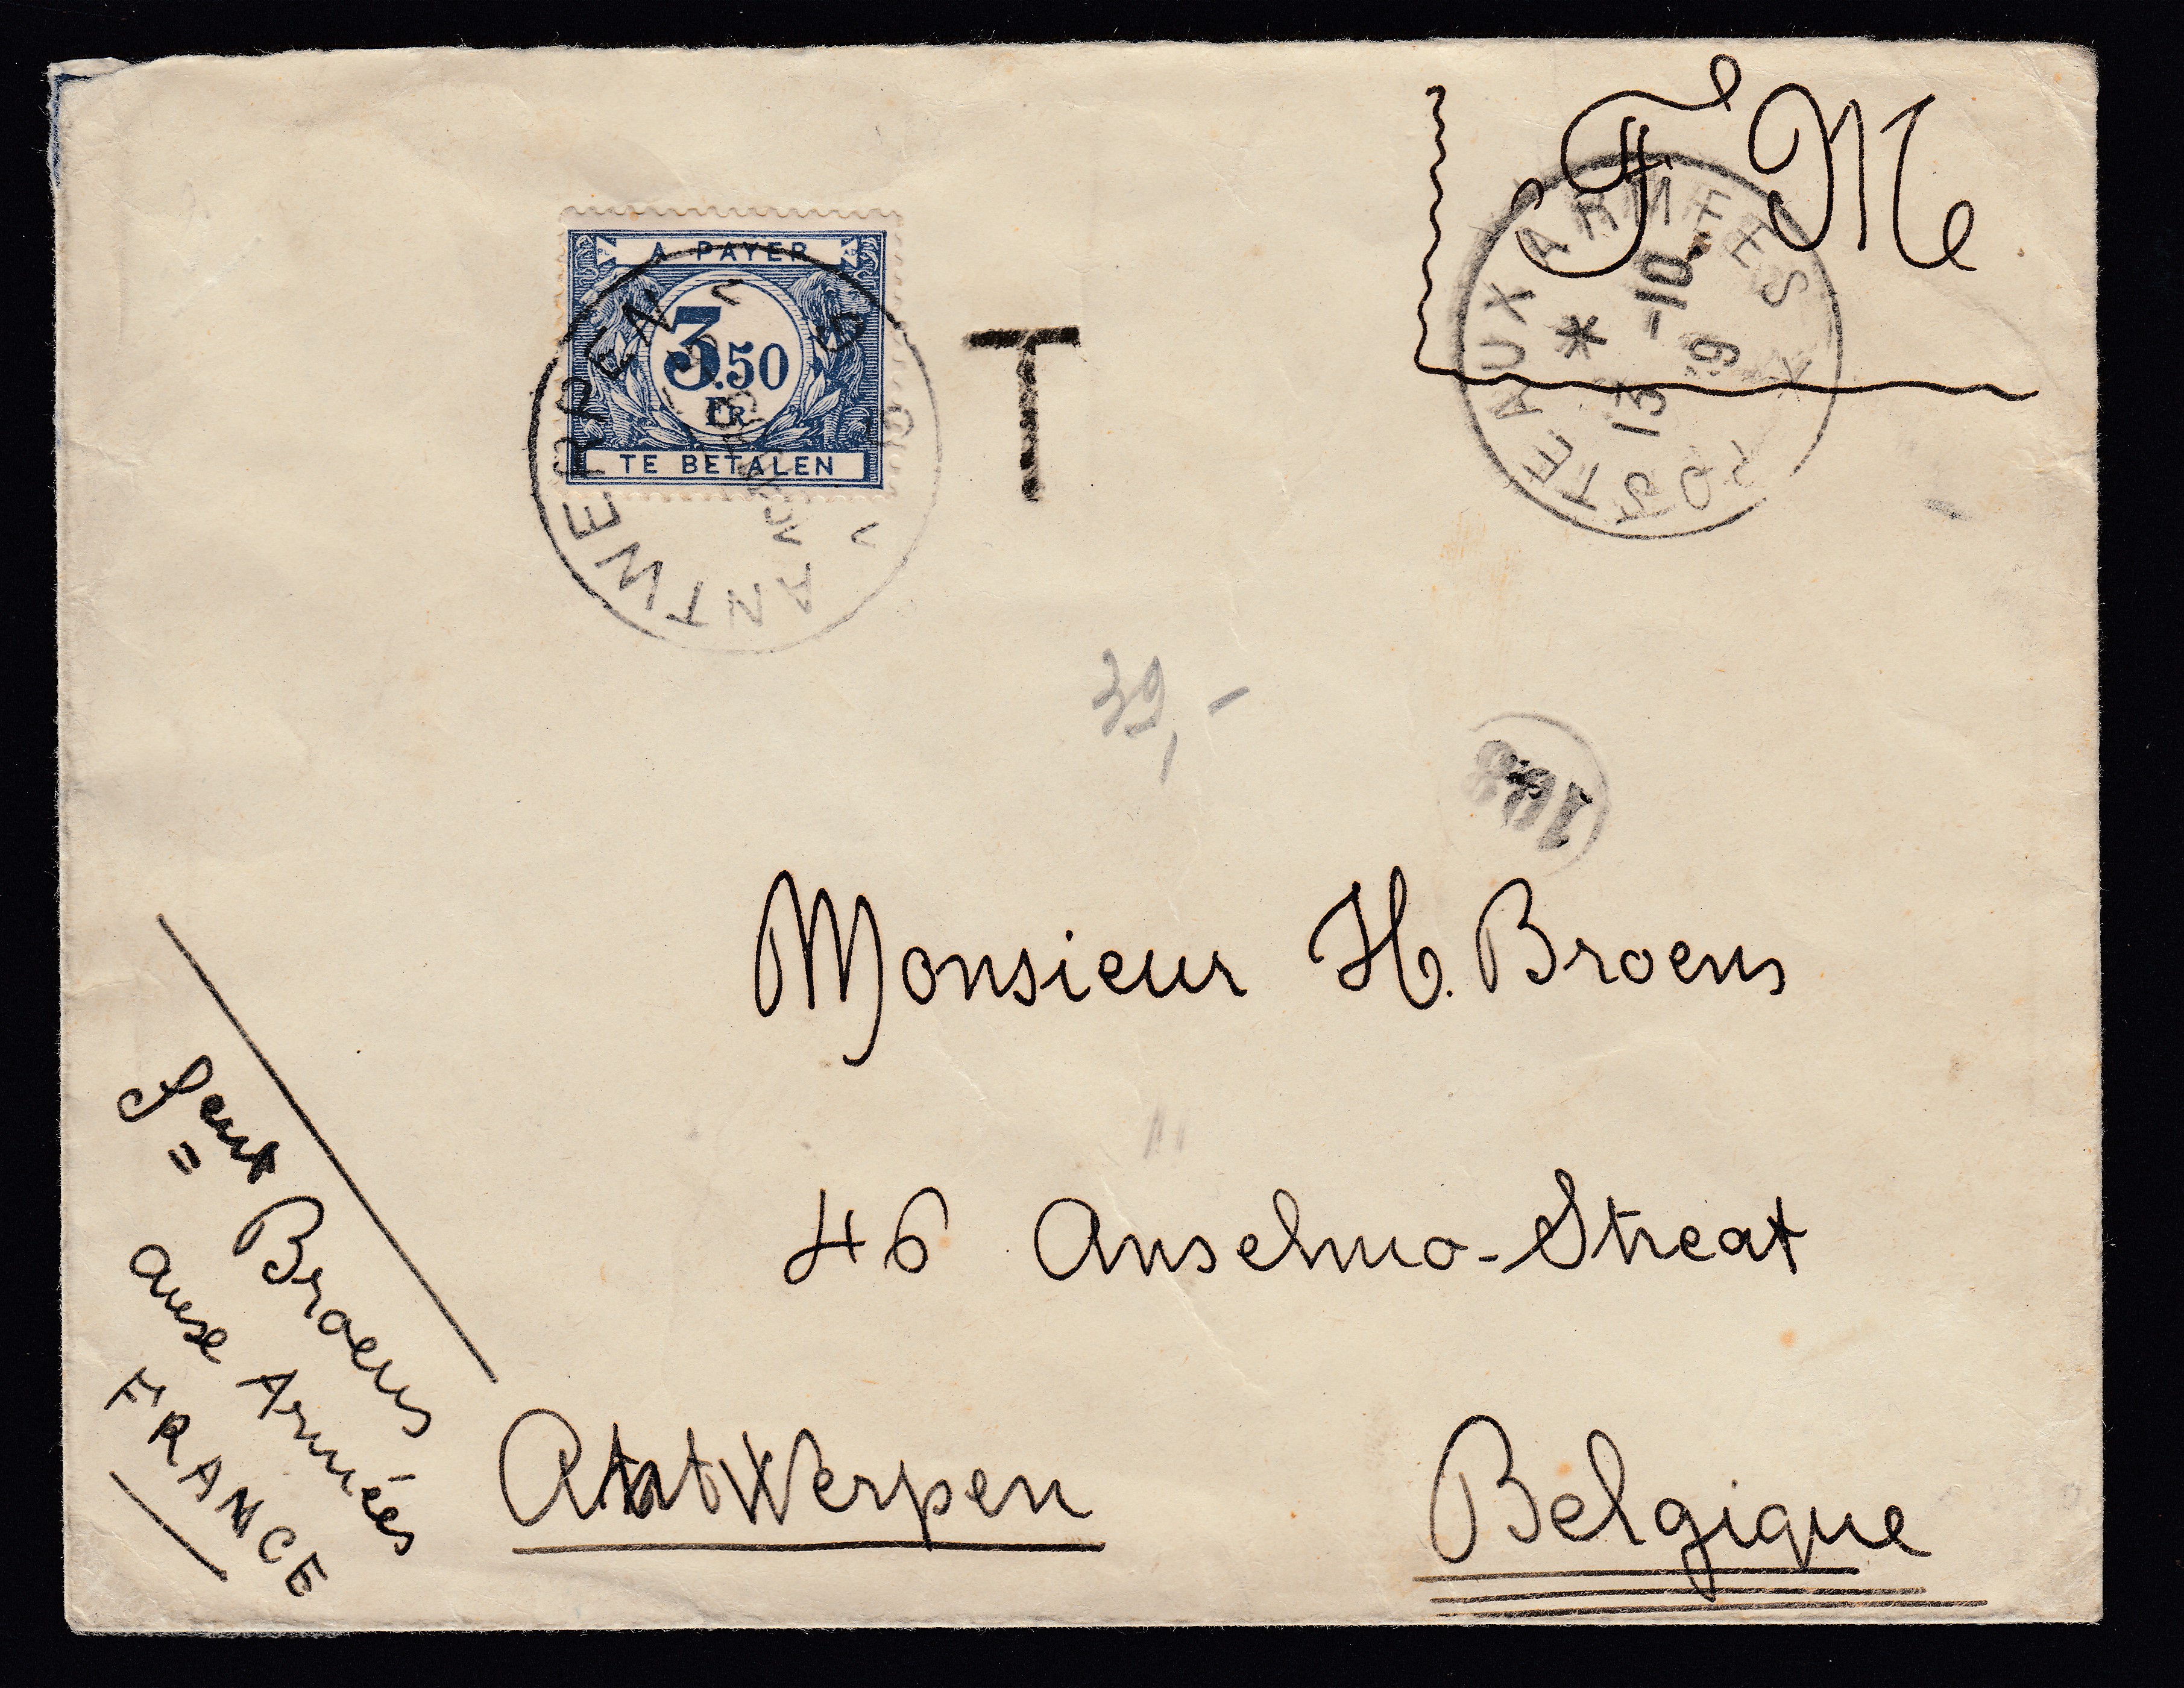 F. M
POSTE AUX ARMEES
*
13 -10
A PAYER
3.50
FR
TE BETALEN
ANTWERPEN
T
39,-
Monsieur H. Broens
46 Anselmo-Streat
Antwerpen
Belgique
Broens
aux Armées
FRANCE